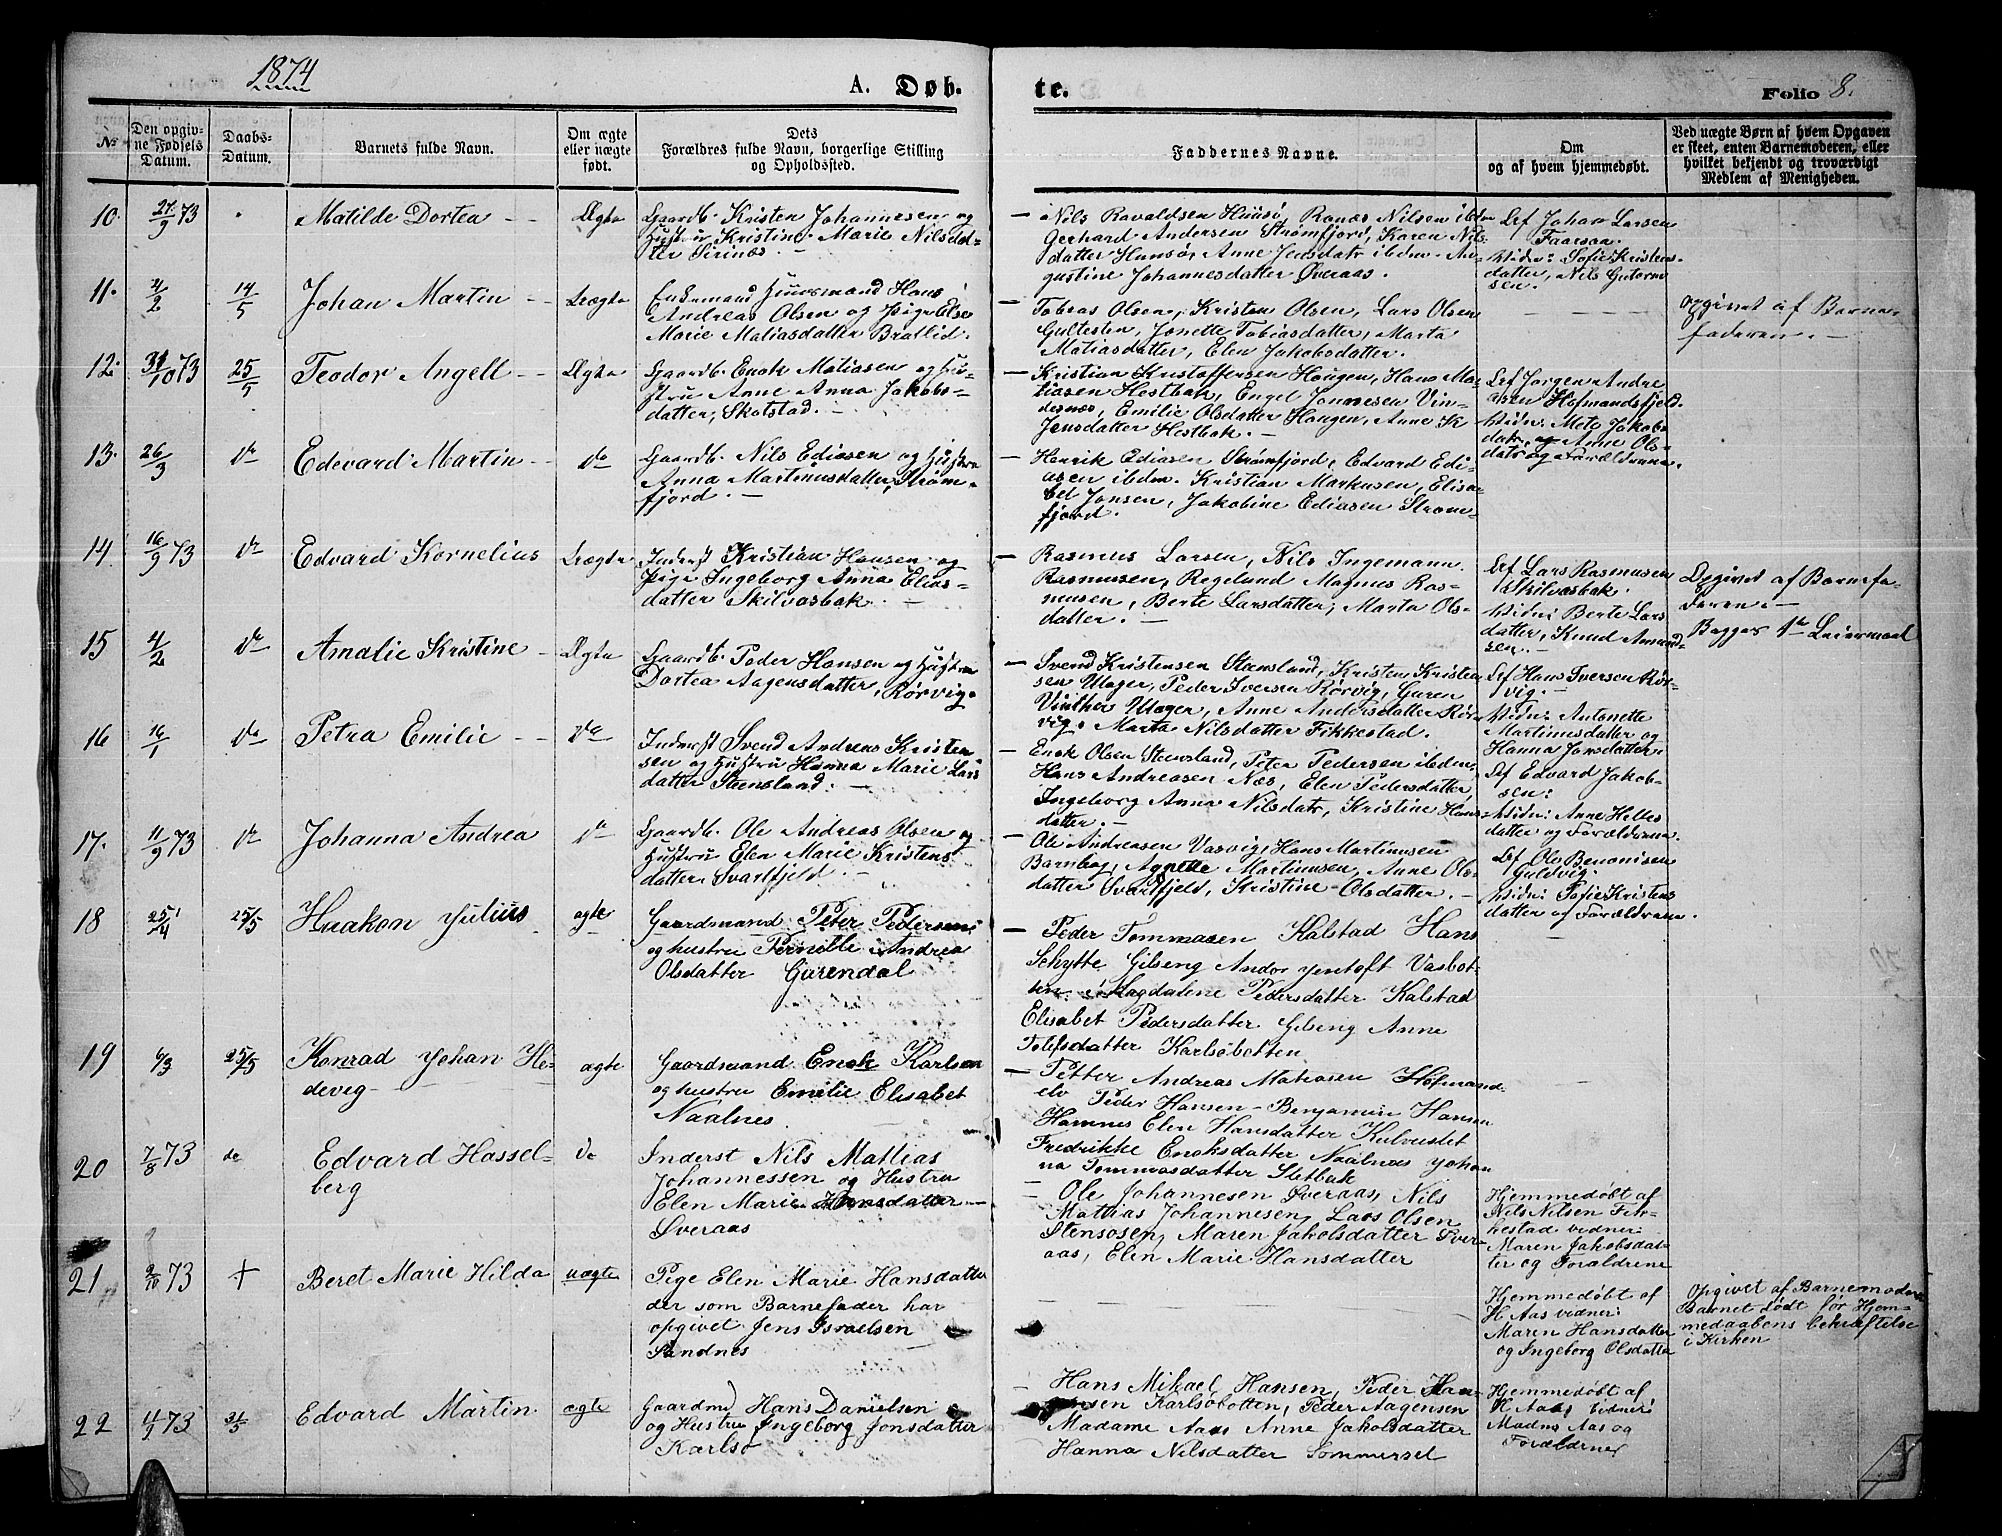 1874
A. Døb.
te.
Folio 8.
№
Den opgiv-
ne Fødsels
Datum.
Daabs-
Datum.
Barnets fulde Navn.
Om ægte
eller uægte
født.
Dets
Forældres fulde Navn, borgerlige Stilling
og Opholdssted.
Faddernes Navne.
Om
og af hvem hjemmedøbt.
Ved uægte Børn af hvem Opgaven
er skeet, enten Barnemoderen, eller
hvilket bekjendt og troværdigt
Medlem af Menigheden.
10. 27/9 73
Matilde Dortea - - Ægte
Gaardb. Kristen Johannesen og
Hustru Kristine Marie Nilsdat-
ter Sirinæs. -
- Nils Ravaldsen Hunsø, Nilsen ibdm
Gerhard Andersen Strømfjord, Karen Nils-
datter Hunsø, Anne Jensdatr ibdm - Au-
gustine Johannesdatter Øveraas.
Johan Larsen
Faarsaa.
Vidn: Sofie Kristens-
datter, Nils Gutorm
sen.
11. 4/2 14/5 Johan Martin - - Uægte
Enkemand Huusmand Hans
Andreas Olsen og Pige Else
Marie Matiasdatter Bratlid.
- Tobias Olsen, Kristen Olsen, Lars Olsen
Gultesten, Jonette Tobiasdatter, Marta
Matiasdatter, Elen Jakobsdatter.
Opgivet af Barne-
faderen. -
12. 31/10 73 25/5 Teodor Angell - - Ægte
Gaardb. Enok Matiasen og Hu-
stru Anne Anna Jakobs-
datter, Skotstad. -
- Kristian Kristoffersen Haugen, Hans Ma-
tiasen Hestbak, Engel Jonnesen Vin-
desnæs, Emilie Olsdatter Haugen, Anne K
Jensdatter Hestbak. -
Jørgen Andre
asen Hofmandsfjeld.
Vidn: Mete Jakobs
datr, og Anne Ols-
datr og Forældrene.
13. 26/3 do Edevard Martin - - do
Gaardb. Nils Ediasen og Hustru
Anna Martinusdatter, Strøm-
fjord. -
- Henrik Ediasen Strømfjord, Edvard Edi-
asen ibdm. Kristian Markusen, Elisa-
bet Jonsen, Jakobine Ediasen Strøm-
fjord.
14. 16/9 73 do Edvard Kornelius Uægte
Inderst Kristian Hansen og
Pige Ingeborg Anna Elias-
datter Skilvasbak. -
- Rasmus Larsen, Nils Ingemann
Rasmusen, Regeland Magnus Ras-
musen, Berte Larsdatter, Marta Ols-
datter. -
Lars Rasmusen
Skilvasbak.
Vidn: Berte Lars
datter, Knud Amund-
sen. -
Opgivet af Barnefa-
deren. -
Begges 1ste Leiermaal
15 4/2 do Amalie Kristine - Ægte
Gaardb. Peder Hansen og Hustru
Dortea Aagensdatter, Rørvig.
- Svend Kristensen Steensland, Kristen Kristen
sen Ulager, Peder Iversen Rørvig, Guren
Vinther Ulager, Anne Andersdatter Rør-
vig. Marta Nilsdatter Fikkestad.
Hans Iversen Rør-
vig. -
Vidn: Antonette
Martinusdatter og
Hanna Jonsdatter.
16 16/1 do Petra Emilie - - do
Inderst Svend Andreas Kristen
sen og Hustru Hanna Marie Lars
datter Steensland. -
- Enok Olsen Steensland, Peter Pedersen ibdm,
Hans Andreasen Næs, Elen Pedersdatter,
Ingeborg Anna Nilsdatr, Kristine Hans-
datter. -
Edvard Jakob-
sen:
Vidn: Anne Helles
datter og Forældrene.
17. 11/9 73 do Johanna Andrea do
Gaardb. Ole Andreas Olsen og
Hustru Elen Marie Kristens
datter Svartfjeld. -
- Ole Andreasen Vasvig, Hans Martinusen
Barnbog, Agnette Martinusen, Anne Ols-
datter Svartfjeld, Kristine Olsdatter. -
Ole Benonisen
Guldvig.
Vidn: Sofie Kristens
datter og Forældrene.
18 25/4 25/5 Haakon Julius ægte
Gaardmand Peter Pedersen
og hustru Pernille Andrea
Olsdatter Gurendal
- Peder Tommasen Kalstad Hans
Schytte Gilseng Andor Jentoft Vasbot-
ten. Magdalene Pedersdatter Kalstad
Elisabet Pedersdatter Gilseng Anne
Tolefsdatter Karlsøbotten
19 6/3 25/5 Konrad Johan He-
devig - - ægte
Gaardmand Enok Karlsen
og hustru Emilie Elisabet
Naalnes
- Petter Andreas Matiasen Hofmand-
elv Peder Hansen - Benjamin Hansen
Hamnes Elen Hansdatter Kulvestet
Fredrikke Enoksdatter Naalnæs Johan
na Tommasdatter Sletbak
20 7/8 73 do Edvard Hassel-
berg do
Inderst Nils Mathias
Johannessen og Hustru
Elen Marie Hansdatter -
Øveraas
- Ole Johannesen Øveraas, Nils
Mathias Johannesen, Lars Olsen
Stensosen, Maren Jakobsdatter Øver-
aas, Elen Marie Hansdatter
Hjemmedøbt af
Nils Nilsen Fik-
kestad vidner:
Maren Jakobsdat-
ter og Forældrene
21 2/10 73 + Beret Marie Hilda uægte
Pige Elen Marie Hansdatter
der som Barnefader har
opgivet Jens Israelsen
Sandnes
Hjemmedøbt af
H Aas vidner:
Maren Hansdatter
og Ingeborg Olsdatter
Opgivet af Barnemoderen
Barnet dødt før Hjem-
medaabens bekræftelse
i Kirken
22 4/9 73 31/5 Edvard Martin ægte
Gaardmd Hans Danielsen
og Hustru Ingeborg Jonsdatter
Karlsø
- Hans Mikael Hansen, Peder Han-
sen Karlsøbotten, Peder Aagensen
Madame Aas Anne Jakobsdatter
Hanna Nilsdatter Sommersel
Hjemmedøbt af
H Aas vidner
Madme Aas og
Forældrene